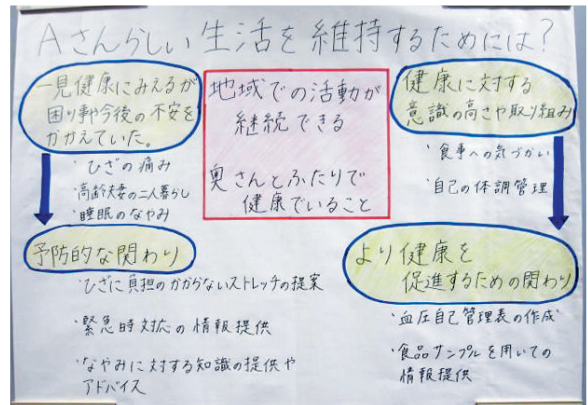 Aさんらしい生活を維持するためには?
一見健康にみえるが
困り事や今後の不安を
かかえていた。
・ひざの痛み
・高齢夫妻の二人暮らし
・睡眠のなやみ
予防的な関わり
・ひざに負担のかからないストレッチの提案
・緊急時対応の情報提供
・なやみに対する知識の提供や
アドバイス
地域での活動が
継続できる
奥さんとふたりで
健康でいること
健康に対する
意識の高さや取り組み
・食事への気づかい
・自己の体調管理
より健康を
促進するための関わり
・血圧自己管理表の作成
・食品サンプルを用いての
情報提供